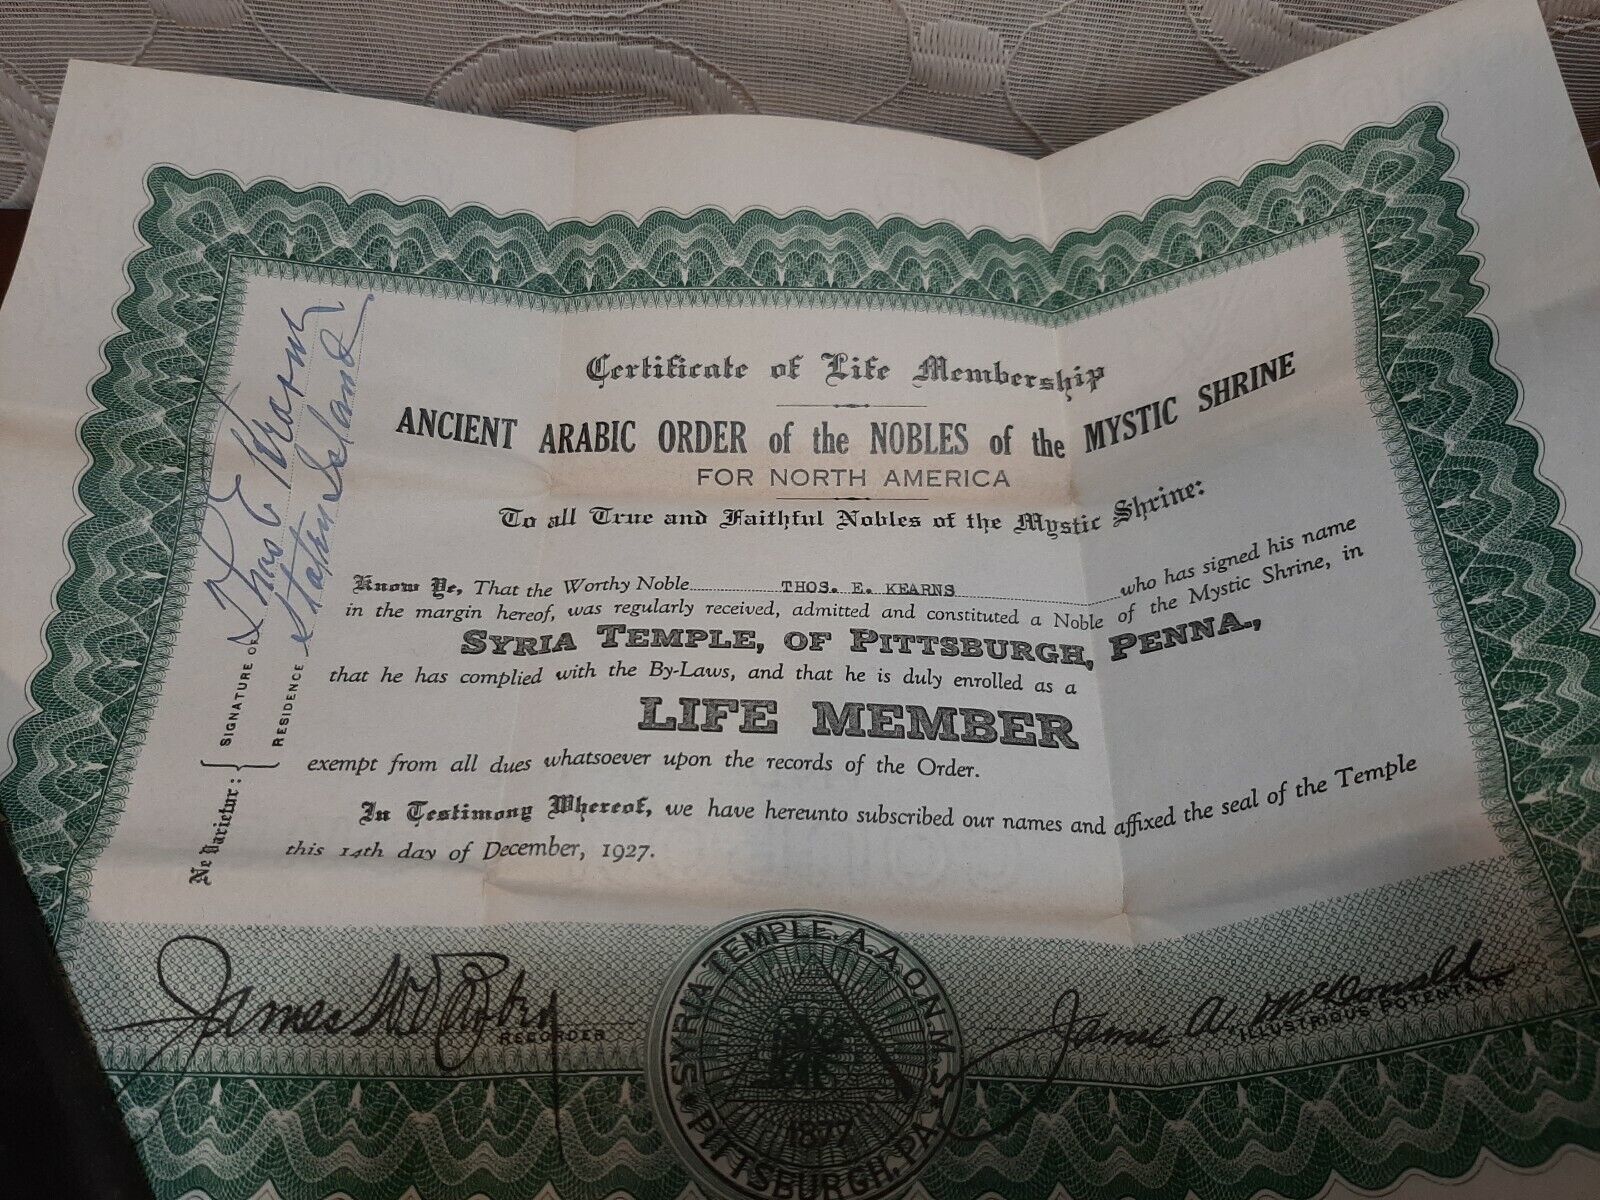 Certificate of Life Membership
ANCIENT ARABIC ORDER of the NOBLES of the MYSTIC SHRINE
FOR NORTH AMERICA
To all True and Faithful Nobles of the Mystic Shrine:
Know Ye, That the Worthy Noble THOS. E. KEARNS who has signed his name
in the margin hereof, was regularly received, admitted and constituted a Noble of the Mystic Shrine, in
SYRIA TEMPLE, OF PITTSBURGH, PENNA.,
that he has complied with the By-Laws, and that he is duly enrolled as a
LIFE MEMBER
exempt from all dues whatsoever upon the records of the Order.
In Testimony Whereof, we have hereunto subscribed our names and affixed the seal of the Temple
this 14th day of December, 1927.
Ne Varietur:
SIGNATURE OF Thos E Kearns
RESIDENCE Staten Island
James
RECORDER
SYRIA TEMPLE, A.A.O.N.M.S.
1877
PITTSBURGH, PA.
James A. McDonald
ILLUSTRIOUS POTENTATE